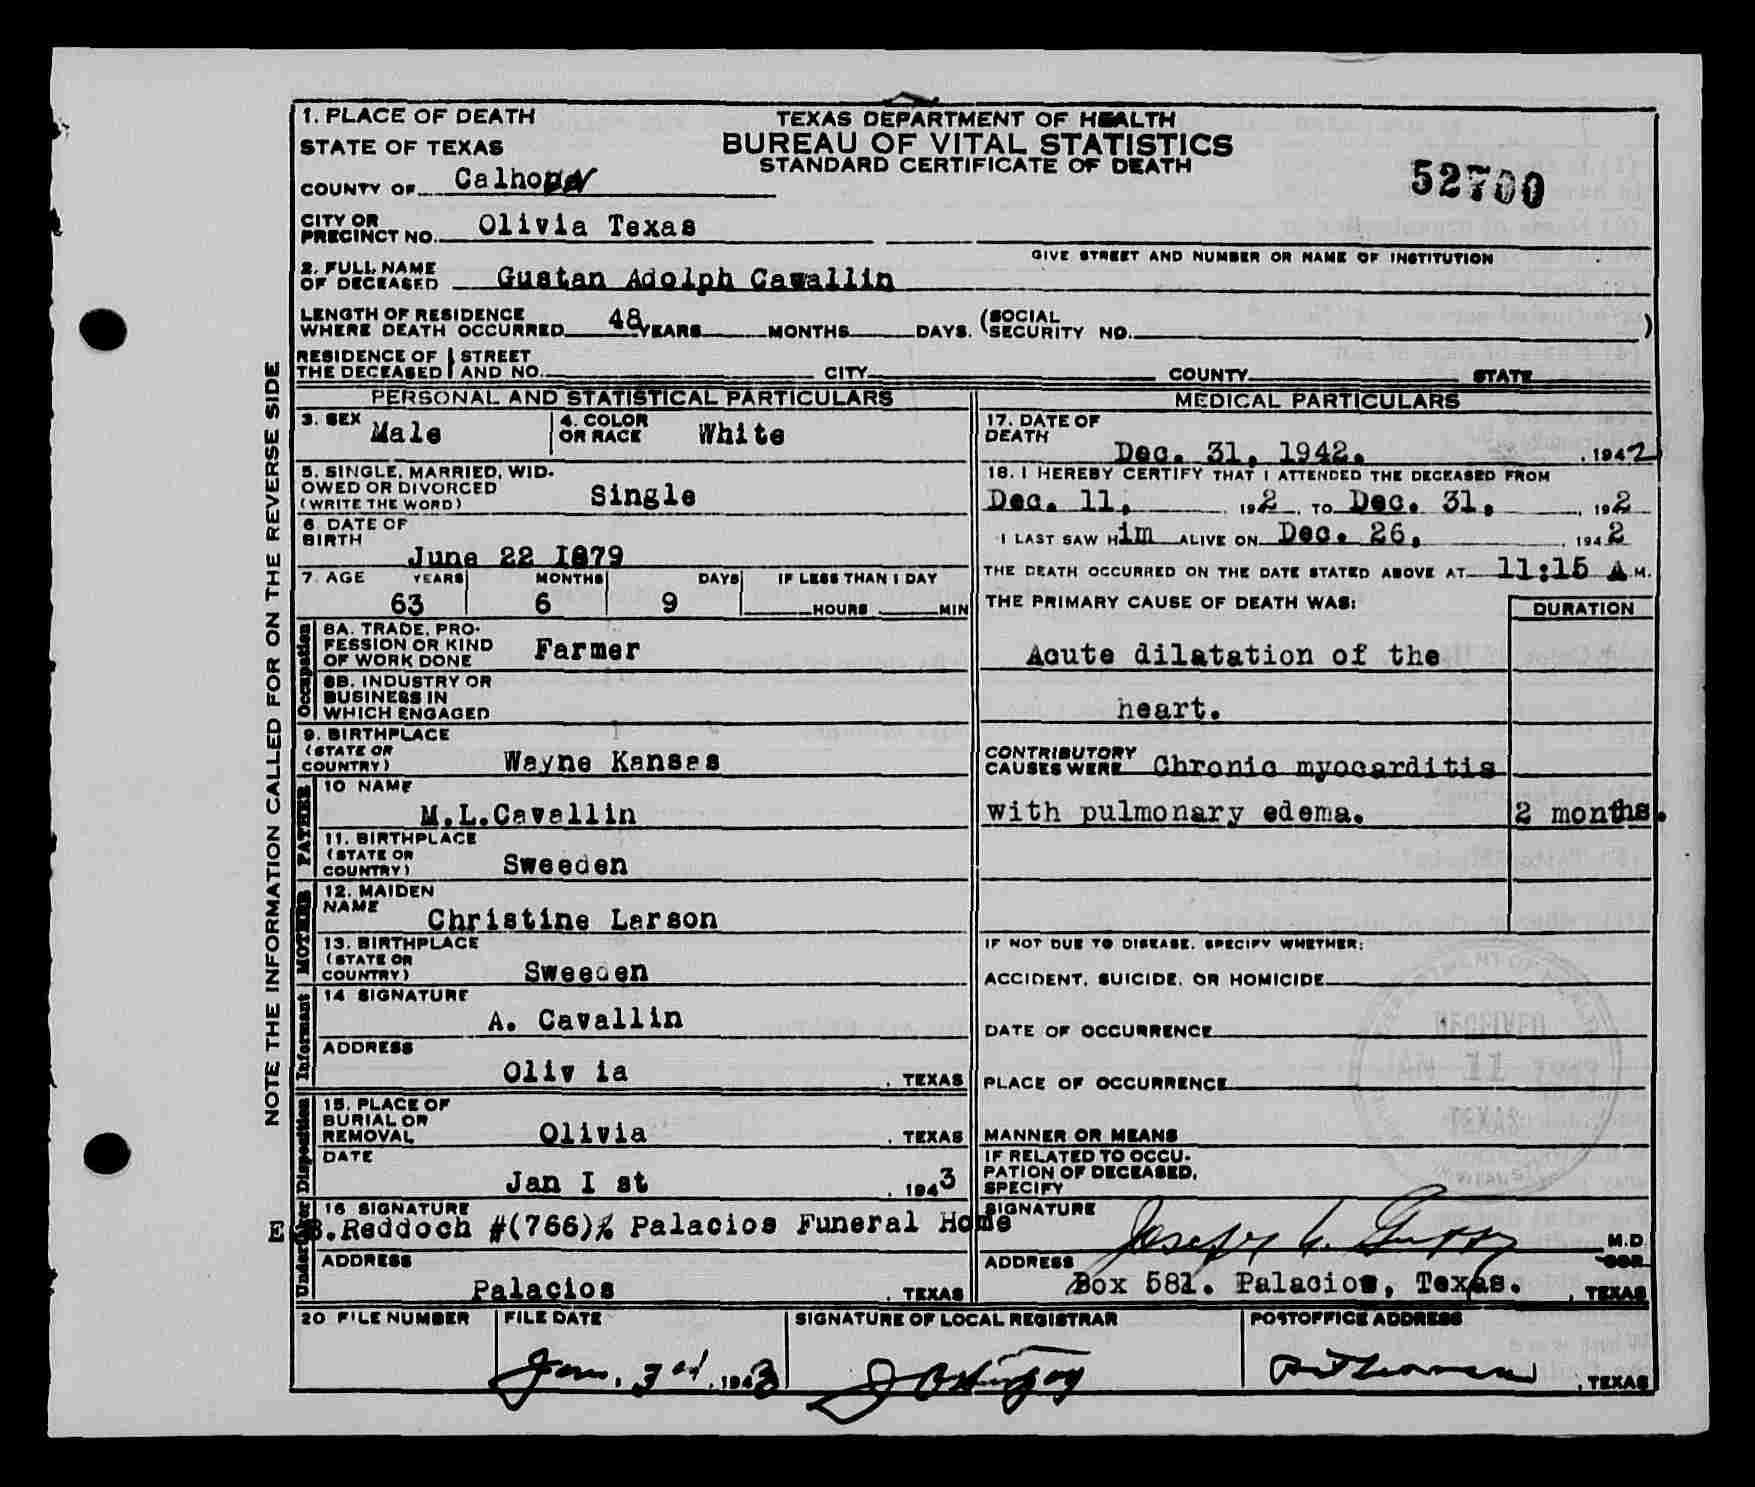 1. PLACE OF DEATH
STATE OF TEXAS
COUNTY OF Calhoun
TEXAS DEPARTMENT OF HEALTH
BUREAU OF VITAL STATISTICS
STANDARD CERTIFICATE OF DEATH
52700
CITY OR
PRECINCT NO. Olivia Texas
GIVE STREET AND NUMBER OR NAME OF INSTITUTION
2. FULL NAME
OF DECEASED Gustan Adolph Cavallin
LENGTH OF RESIDENCE
WHERE DEATH OCCURRED 48 YEARS MONTHS DAYS. (SOCIAL
SECURITY NO. )
RESIDENCE OF THE DECEASED STREET AND NO. CITY COUNTY STATE
NOTE THE INFORMATION CALLED FOR ON THE REVERSE SIDE
PERSONAL AND STATISTICAL PARTICULARS
3. SEX Male 4. COLOR OR RACE White
5. SINGLE, MARRIED, WID-
OWED OR DIVORCED
(WRITE THE WORD) Single
6. DATE OF
BIRTH June 22 I879
7. AGE YEARS MONTHS DAYS IF LESS THAN 1 DAY
63 6 9 HOURS MIN
Occupation
8A. TRADE, PRO-
FESSION OR KIND
OF WORK DONE Farmer
8B. INDUSTRY OR
BUSINESS IN
WHICH ENGAGED
9. BIRTHPLACE
(STATE OR
COUNTRY) Wayne Kansas
FATHER
10 NAME
M.L.Cavallin
11. BIRTHPLACE
(STATE OR
COUNTRY) Sweeden
MOTHER
12. MAIDEN
NAME Christine Larson
13. BIRTHPLACE
(STATE OR
COUNTRY) Sweeden
Informant
14 SIGNATURE
A. Cavallin
ADDRESS
Oliv ia , TEXAS
Disposition
15. PLACE OF
BURIAL OR
REMOVAL Olivia , TEXAS
DATE
Jan I st , 1943
Undertaker
16 SIGNATURE
E.B.Reddoch #(766)% Palacios Funeral Home
ADDRESS
Palacios , TEXAS
MEDICAL PARTICULARS
17. DATE OF
DEATH Dec. 31, 1942. , 1942
18. I HEREBY CERTIFY THAT I ATTENDED THE DECEASED FROM
Dec. 11, 192, TO Dec. 31, , 192
I LAST SAW Him ALIVE ON Dec. 26, , 1942
THE DEATH OCCURRED ON THE DATE STATED ABOVE AT 11:15 A M.
THE PRIMARY CAUSE OF DEATH WAS: DURATION
Acute dilatation of the
heart.
CONTRIBUTORY
CAUSES WERE Chronic myocarditis
with pulmonary edema. 2 months.
IF NOT DUE TO DISEASE, SPECIFY WHETHER:
ACCIDENT, SUICIDE, OR HOMICIDE
DATE OF OCCURRENCE
PLACE OF OCCURRENCE
MANNER OR MEANS
IF RELATED TO OCCU-
PATION OF DECEASED,
SPECIFY
SIGNATURE Joseph M.D.
ADDRESS Box 581. Palacios, Texas. , TEXAS
20 FILE NUMBER FILE DATE SIGNATURE OF LOCAL REGISTRAR POSTOFFICE ADDRESS
Jan. 3rd , 1943 , TEXAS